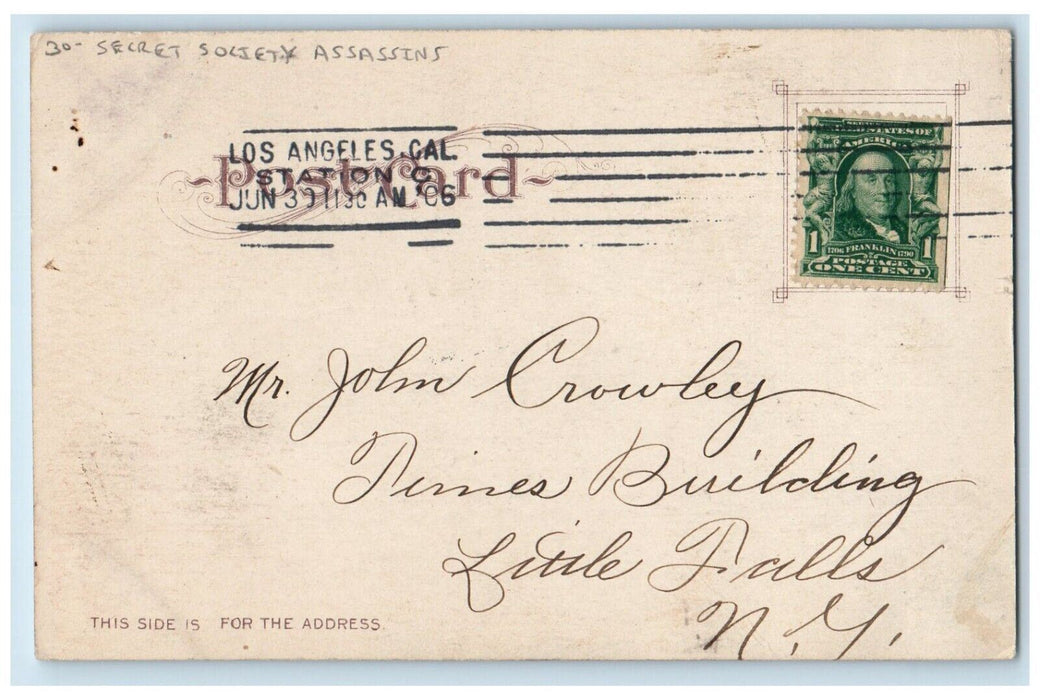 30- SECRET SOCIETY ASSASSINS
Post Card
LOS ANGELES, CAL.
STATION C
JUN 30 1130 AM '06
UNITED STATES OF
AMERICA
1 1706 FRANKLIN 1790 1
POSTAGE
ONE CENT
Mr. John Crowley
Times Building
Little Falls
N.Y.
THIS SIDE IS FOR THE ADDRESS.